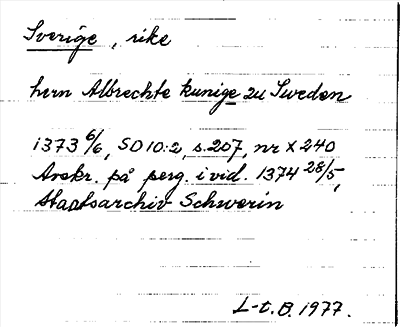 Sverige, rike
hern Albrechte kunige zu Sweden
1373 6/6, SD 10:2, s.207, nr X 240
Avskr. på perg. i vid. 1374 28/5,
Staatsarchiv Schwerin
L-t. B. 1977.